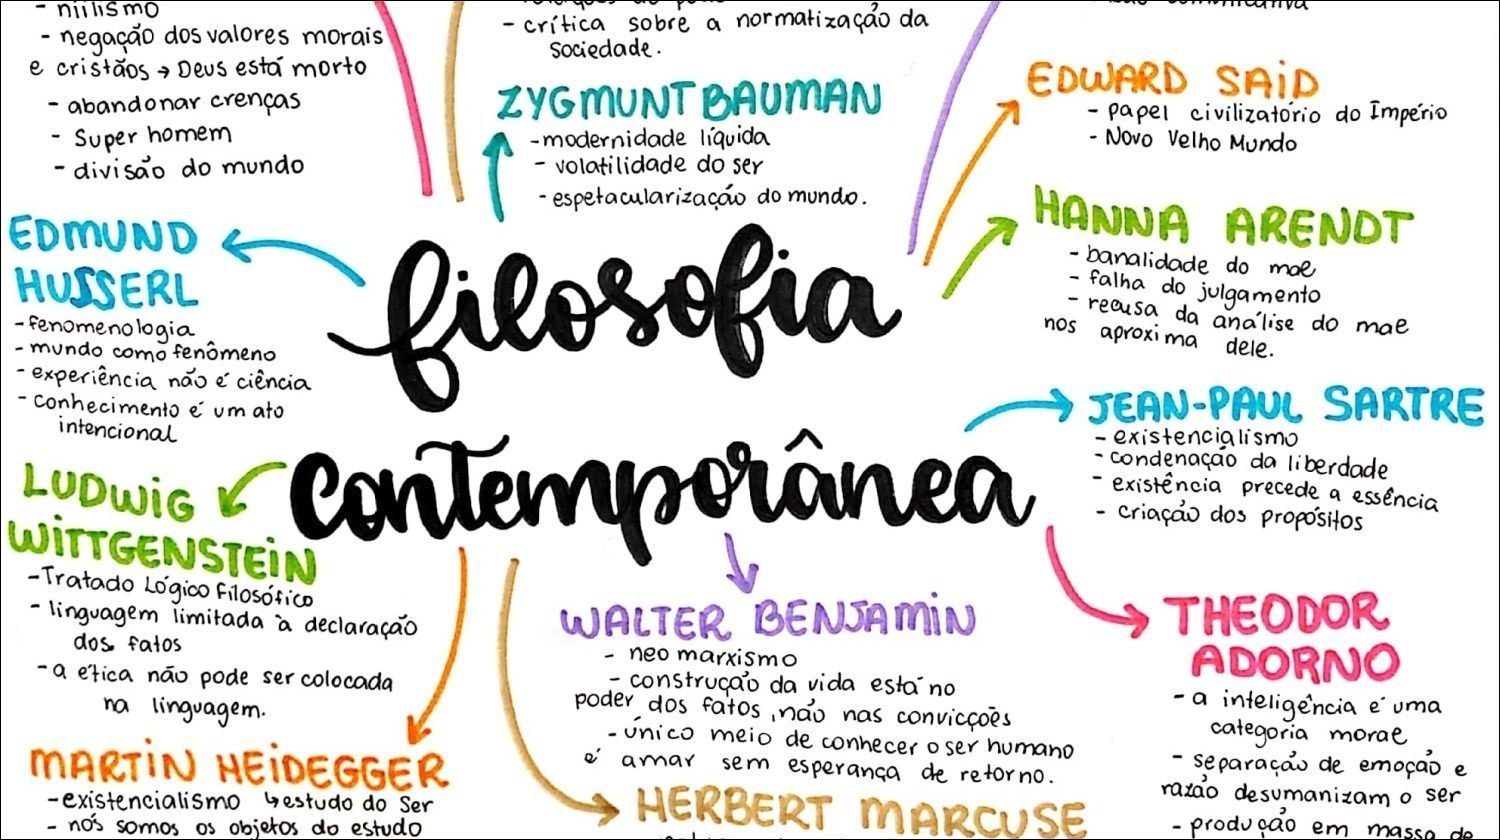 - niilismo
- negação dos valores morais
e cristãos → Deus está morto
- abandonar crenças
- Super homem
- divisão do mundo
- crítica sobre a normatização da
sociedade.
ZYGMUNT BAUMAN
- modernidade líquida
- volatilidade do ser
- espetacularização do mundo.
EDWARD SAID
- papel civilizatório do Império
- Novo Velho Mundo
HANNA ARENDT
- banalidade do mal
- falha do julgamento
- recusa da análise do mal
nos aproxima dele.
EDMUND
HUSSERL
- fenomenologia
- mundo como fenômeno
- experiência não é ciência
- conhecimento é um ato
intencional
filosofia
contemporânea
JEAN-PAUL SARTRE
- existencialismo
- condenação da liberdade
- existência precede a essência
- criação dos propósitos
LUDWIG
WITTGENSTEIN
- Tratado Lógico Filosófico
- linguagem limitada à declaração
dos fatos
- a ética não pode ser colocada
na linguagem.
WALTER BENJAMIN
- neo marxismo
- construção da vida está no
poder dos fatos, não nas convicções
- único meio de conhecer o ser humano
é amar sem esperança de retorno.
THEODOR
ADORNO
- a inteligência é uma
categoria moral
- separação de emoção e
razão desumanizam o ser
- produção em massa de
MARTIN HEIDEGGER
- existencialismo ↳ estudo do Ser
- nós somos os objetos do estudo
HERBERT MARCUSE